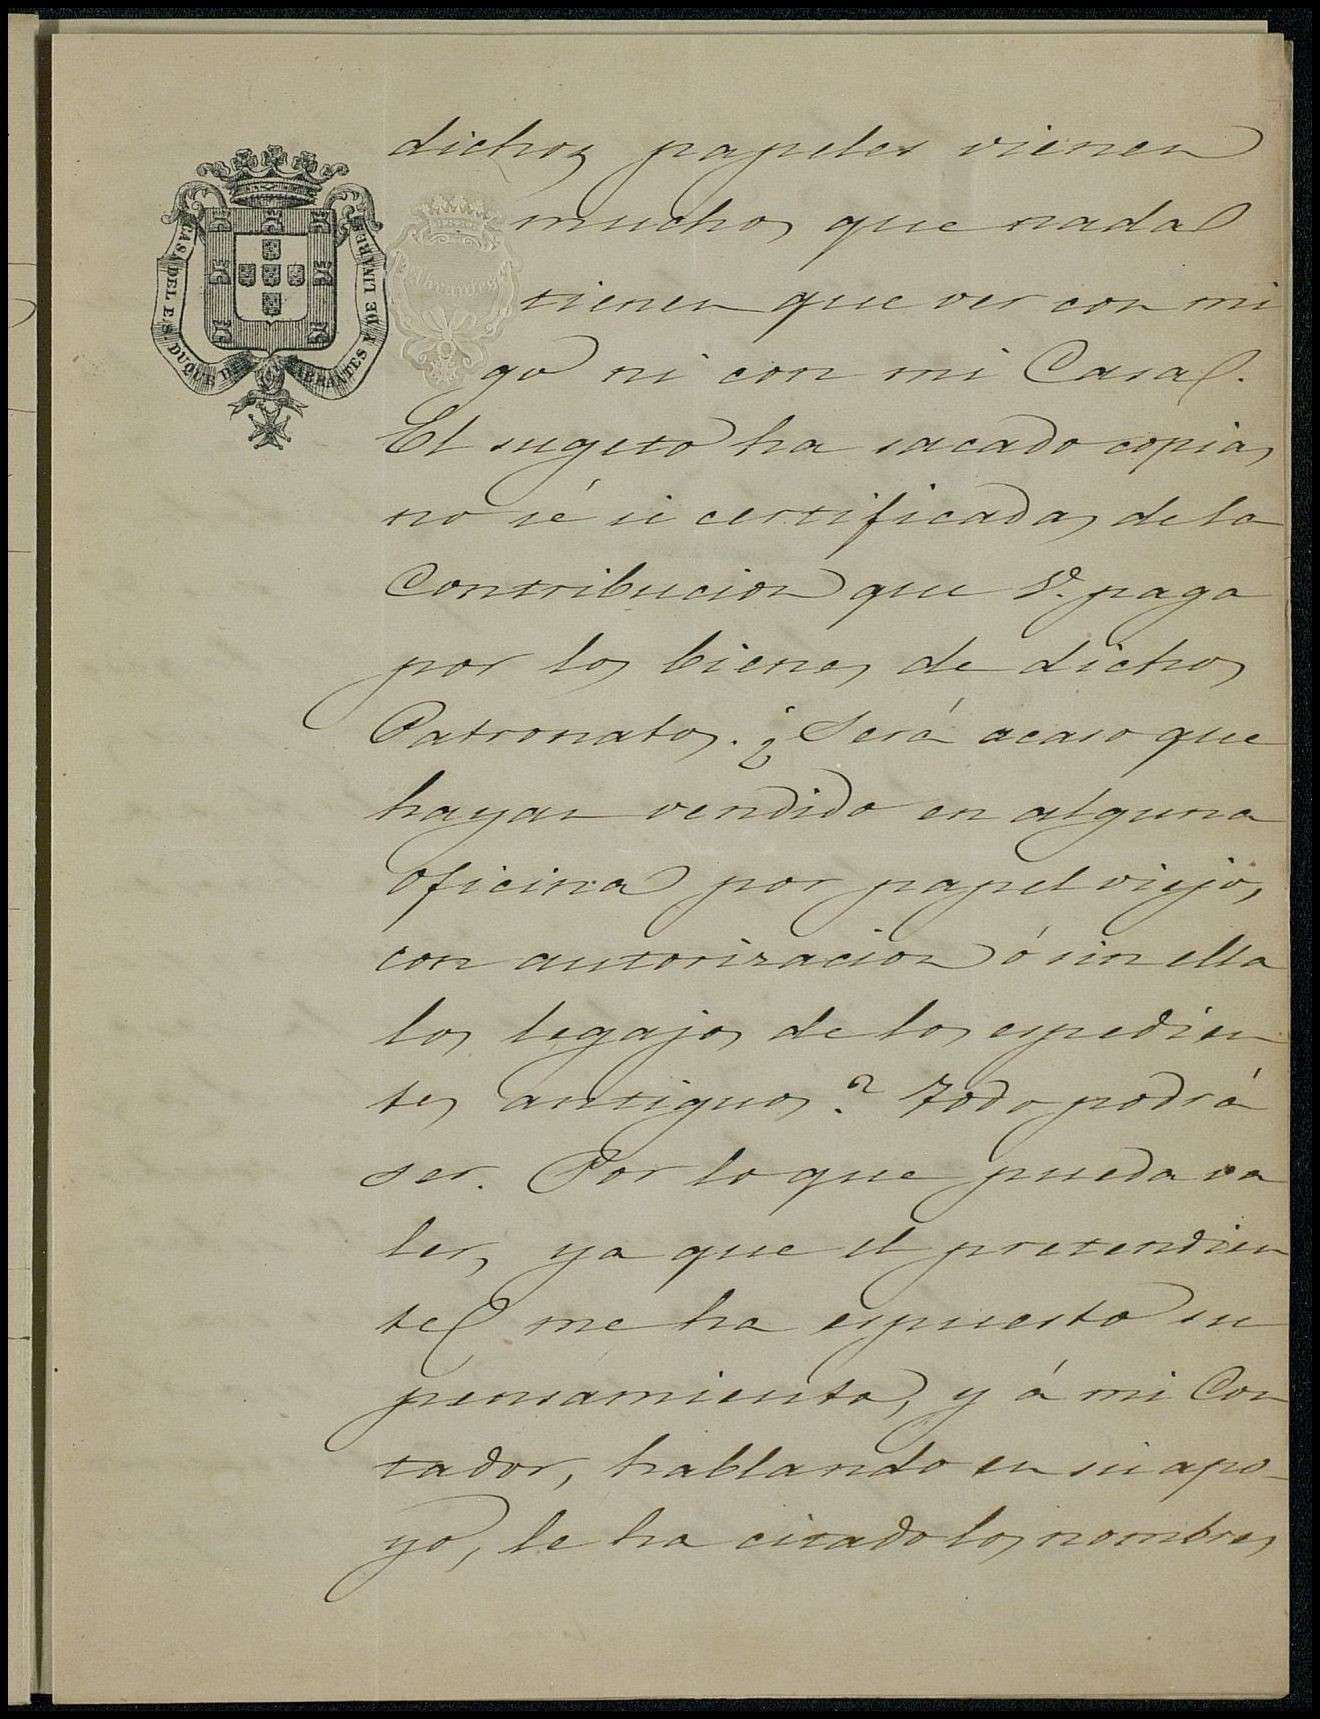 CASA DEL E.S. DUQUE DE ABRANTES Y DE LINARES
dichos papeles vienen
muchos que nada
tienen que ver con mi
go ni con mi Casa.
El sugeto ha sacado copias
no sé si certificadas de la
Contribucion que V. paga
por los bienes de dichos
Patronatos. ¿Será acaso que
hayan vendido en alguna
oficina por papel viejo,
con autorizacion ó sin ella
los legajos de los espedien
tes antiguos? Todo podrá
ser. Por lo que pueda va
ler, ya que el pretendien
te me ha espuesto su
pensamiento, y á mi Con
tador, hablando en su apo-
yo, le ha citado los nombres